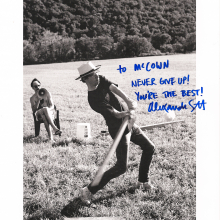 to McCOWN
NEVER GIVE UP!
YOU'RE THE BEST!